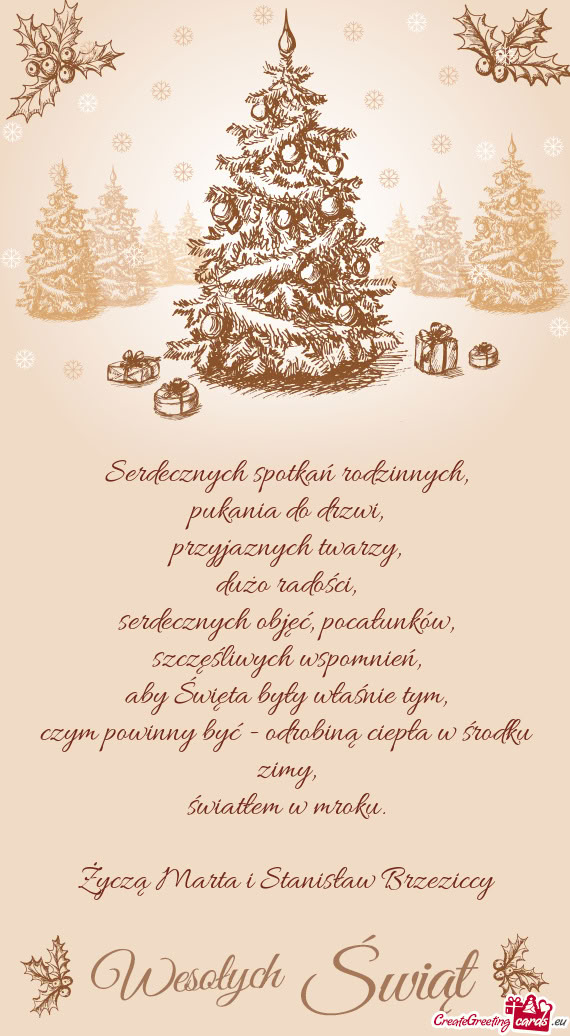 Serdecznych spotkań rodzinnych,
pukania do drzwi,
przyjaznych twarzy,
dużo radości,
serdecznych objęć, pocałunków,
szczęśliwych wspomnień,
aby Święta były właśnie tym,
czym powinny być - odrobiną ciepła w środku
zimy,
światłem w mroku.
Życzą Marta i Stanisław Brzeziccy
Wesołych Świąt
CreateGreeting cards .eu